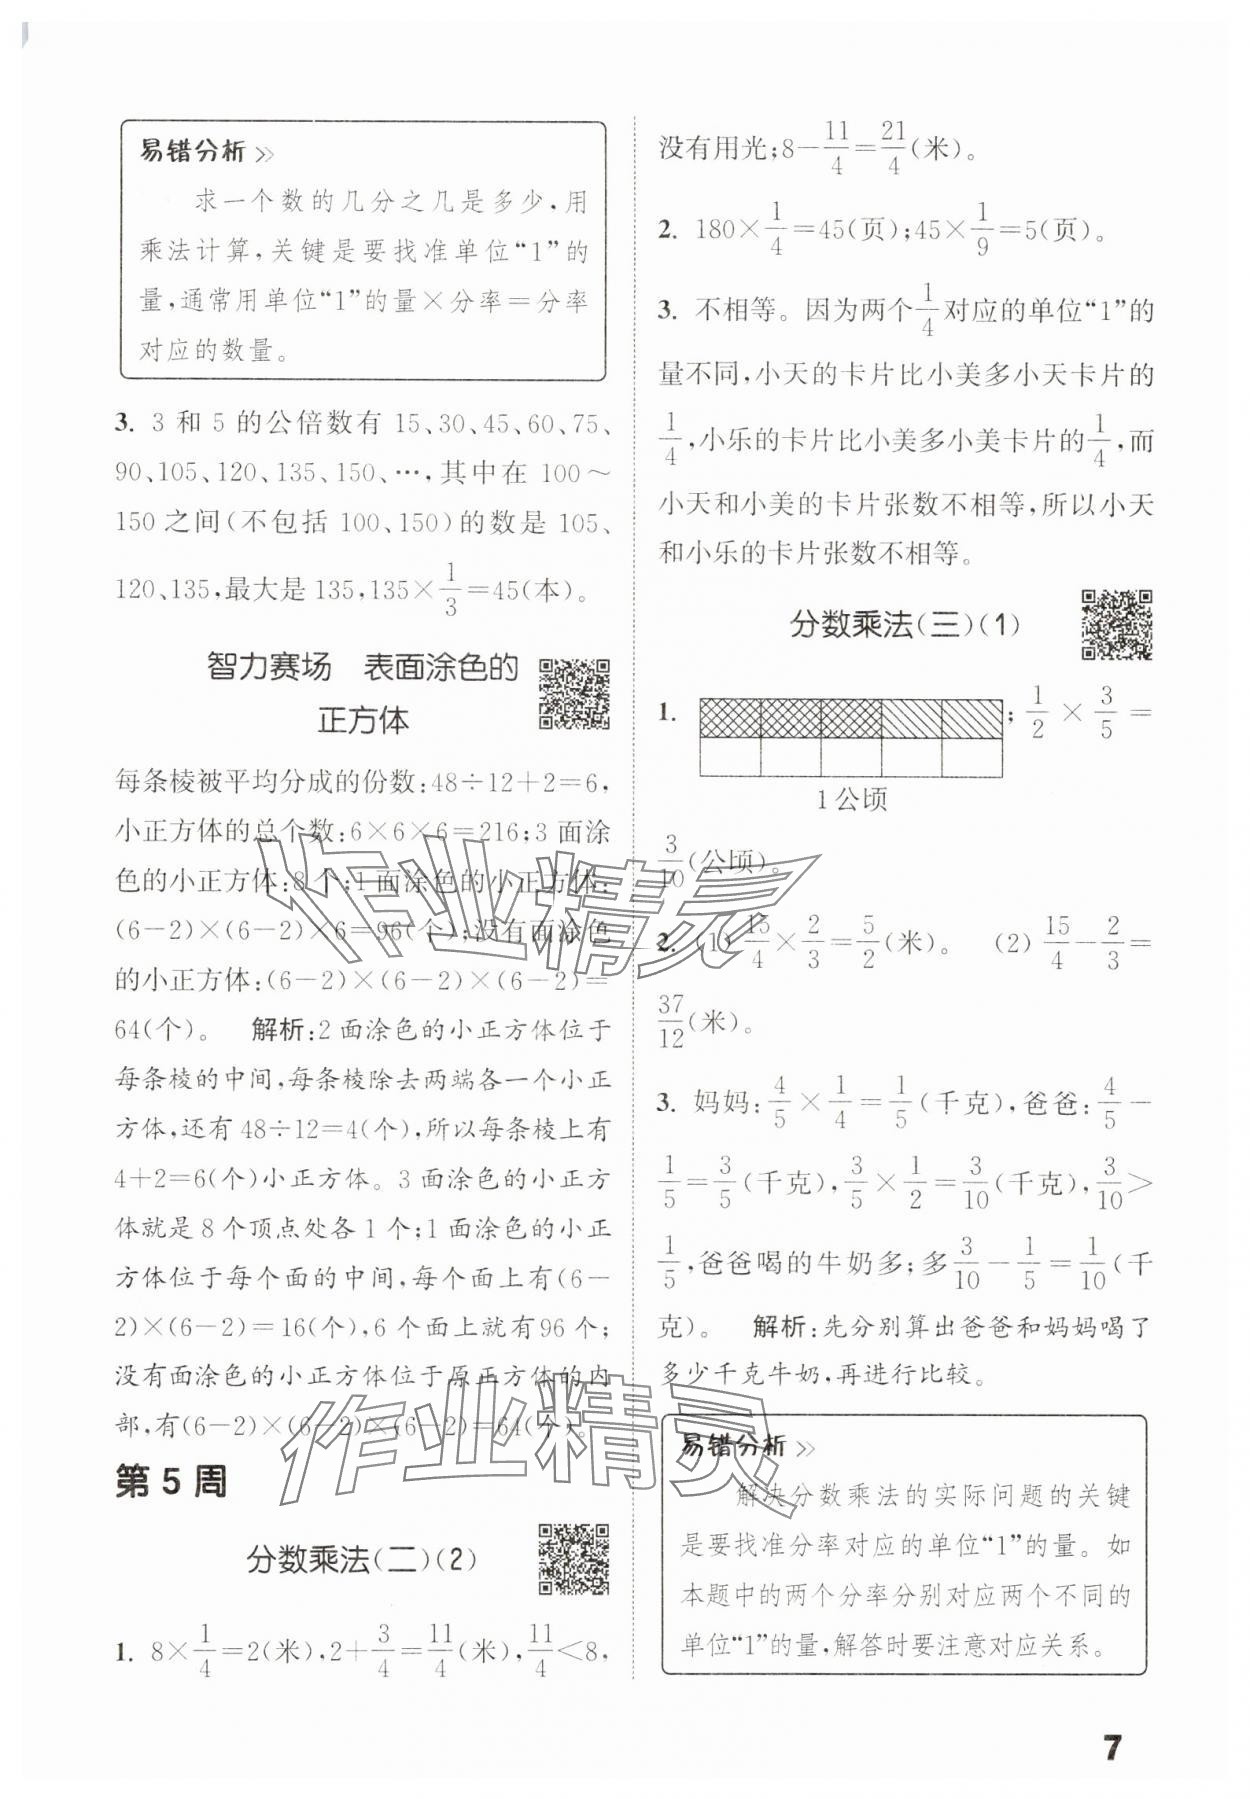 易错分析 >>
求一个数的几分之几是多少,用
乘法计算,关键是要找准单位“1”的
量,通常用单位“1”的量×分率=分率
对应的数量。
3. 3 和 5 的公倍数有 15、30、45、60、75、
90、105、120、135、150、…,其中在 100~
150 之间(不包括 100、150)的数是 105、
120、135,最大是 135,135×1/3=45(本)。
智力赛场 表面涂色的
正方体
每条棱被平均分成的份数:48÷12+2=6,
小正方体的总个数:6×6×6=216;3 面涂
色的小正方体:8 个;1 面涂色的小正方体:
(6-2)×(6-2)×6=96(个);没有面涂色
的小正方体:(6-2)×(6-2)×(6-2)=
64(个)。 解析:2 面涂色的小正方体位于
每条棱的中间,每条棱除去两端各一个小正
方体,还有 48÷12=4(个),所以每条棱上有
4+2=6(个)小正方体。3 面涂色的小正方
体就是 8 个顶点处各 1 个;1 面涂色的小正
方体位于每个面的中间,每个面上有(6-
2)×(6-2)=16(个),6 个面上就有96 个;
没有面涂色的小正方体位于原正方体的内
部,有(6-2)×(6-2)×(6-2)=64(个)。
第 5 周
分数乘法(二)(2)
1. 8×1/4=2(米),2+3/4=11/4(米),11/4<8,
没有用光;8-11/4=21/4(米)。
2. 180×1/4=45(页);45×1/9=5(页)。
3. 不相等。因为两个1/4对应的单位“1”的
量不同,小天的卡片比小美多小天卡片的
1/4,小乐的卡片比小美多小美卡片的1/4,而
小天和小美的卡片张数不相等,所以小天
和小乐的卡片张数不相等。
分数乘法(三)(1)
1. ;1/2×3/5=
1公顷
3/10(公顷)。
2. (1) 15/4×2/3=5/2(米)。 (2) 15/4-2/3=
37/12(米)。
3. 妈妈:4/5×1/4=1/5(千克),爸爸:4/5-
1/5=3/5(千克),3/5×1/2=3/10(千克),3/10>
1/5,爸爸喝的牛奶多;多3/10-1/5=1/10(千
克)。 解析:先分别算出爸爸和妈妈喝了
多少千克牛奶,再进行比较。
易错分析 >>
解决分数乘法的实际问题的关键
是要找准分率对应的单位“1”的量。如
本题中的两个分率分别对应两个不同的
单位“1”的量,解答时要注意对应关系。
7
作业精灵
作业精灵